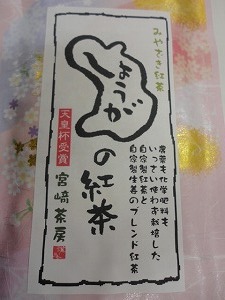 みやざき紅茶
農薬も化学肥料も
いっさい使わず栽培した
自家製紅茶と
自家製生姜のブレンド紅茶
しょうが
の紅茶
天皇杯受賞
宮﨑茶房